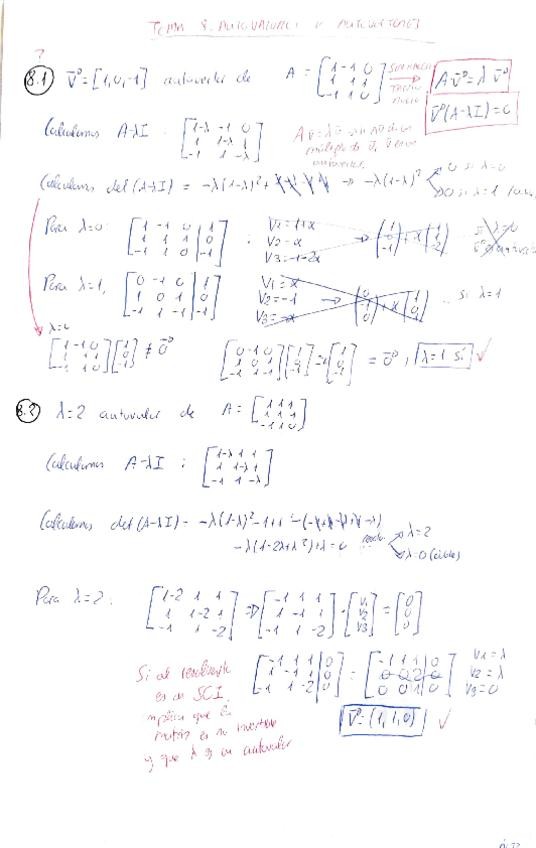 TEMA 8. AUTOVALORES Y AUTOVECTORES
?
8.1 v⃗ = [1,0,-1] autovector de A = [1 -1 0; 1 1 1; -1 1 0]
A·v⃗ = λ v⃗
v⃗(A-λI) = 0
Calculamos A-λI : [1-λ -1 0; 1 1-λ 1; -1 1 -λ]
múltiplo de
Calculamos det(A-λI) = -λ(1-λ)² + → -λ(1-λ)² 0 si λ=0
si λ=1
Para λ=0: [1 -1 0 | 1; 1 1 1 | 0; -1 1 0 | -1] : V1 = 1+α
V2 = α
V3 = -1-2α
→ (1 0 -1) + α (1 1 -2) si λ=0
Para λ=1, [0 -1 0 | 1; 1 0 1 | 0; -1 1 -1 | -1] V1 = α
V2 = -1
V3 = -α
→ (0 -1 0) + α (1 0 -1) .. si λ=1
λ=0
[1 -1 0; 1 1 1; -1 1 0] [1 0 -1] ≠ 0⃗ [0 -1 0; 1 0 1; -1 1 -1] [1 0 -1] = 0⃗, λ=1 sí ✓
8.2 λ=2 autovalor de A = [1 1 1; 1 1 1; -1 1 0]
Calculamos A-λI : [1-λ 1 1; 1 1-λ 1; -1 1 -λ]
Calculamos det(A-λI) = -λ(1-λ)² -1+1 -(
-λ(1-2λ+λ²)+λ = 0 λ=2
λ=0 (doble)
Para λ=2: [1-2 1 1; 1 1-2 1; -1 1 -2] ⇒ [-1 1 1; 1 -1 1; -1 1 -2] · [V1 V2 V3] = [0 0 0]
Si al resolverla
es un SCI,
implica que la
matriz es no invertible
y que λ es un autovalor
[-1 1 1 | 0; 1 -1 1 | 0; -1 1 -2 | 0] = [-1 1 1 | 0; 0 0 2 | 0; 0 0 1 | 0] V1 = λ
V2 = λ
V3 = 0
v⃗ = (1,1,0) ✓